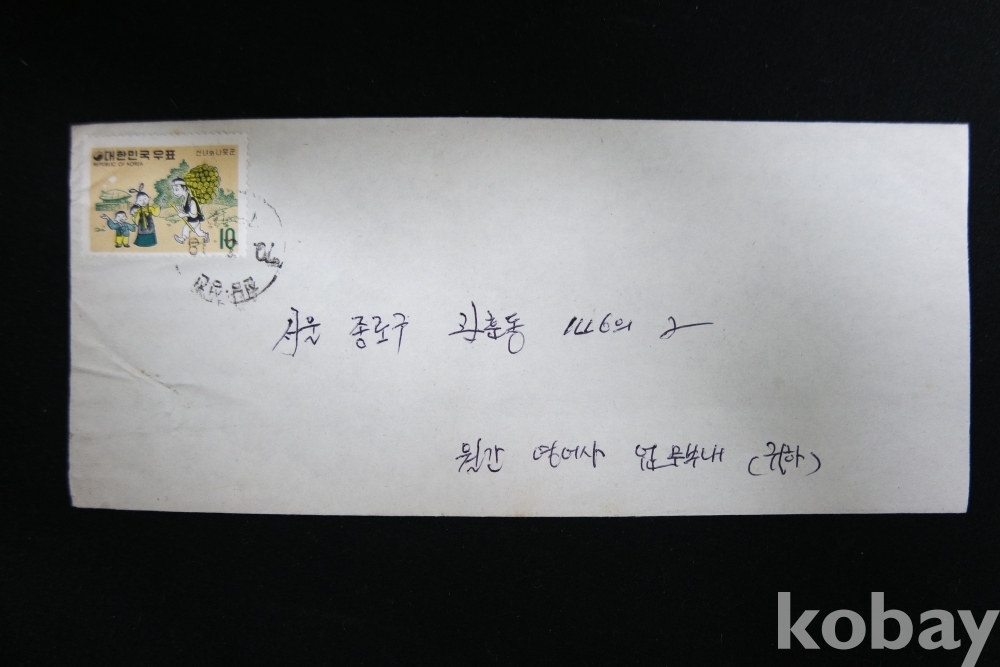 대한민국우표
REPUBLIC OF KOREA
선녀와 나무꾼
10
서울 종로구 관훈동 146의 2
월간 영어사 업무부내 (귀하)
kobay